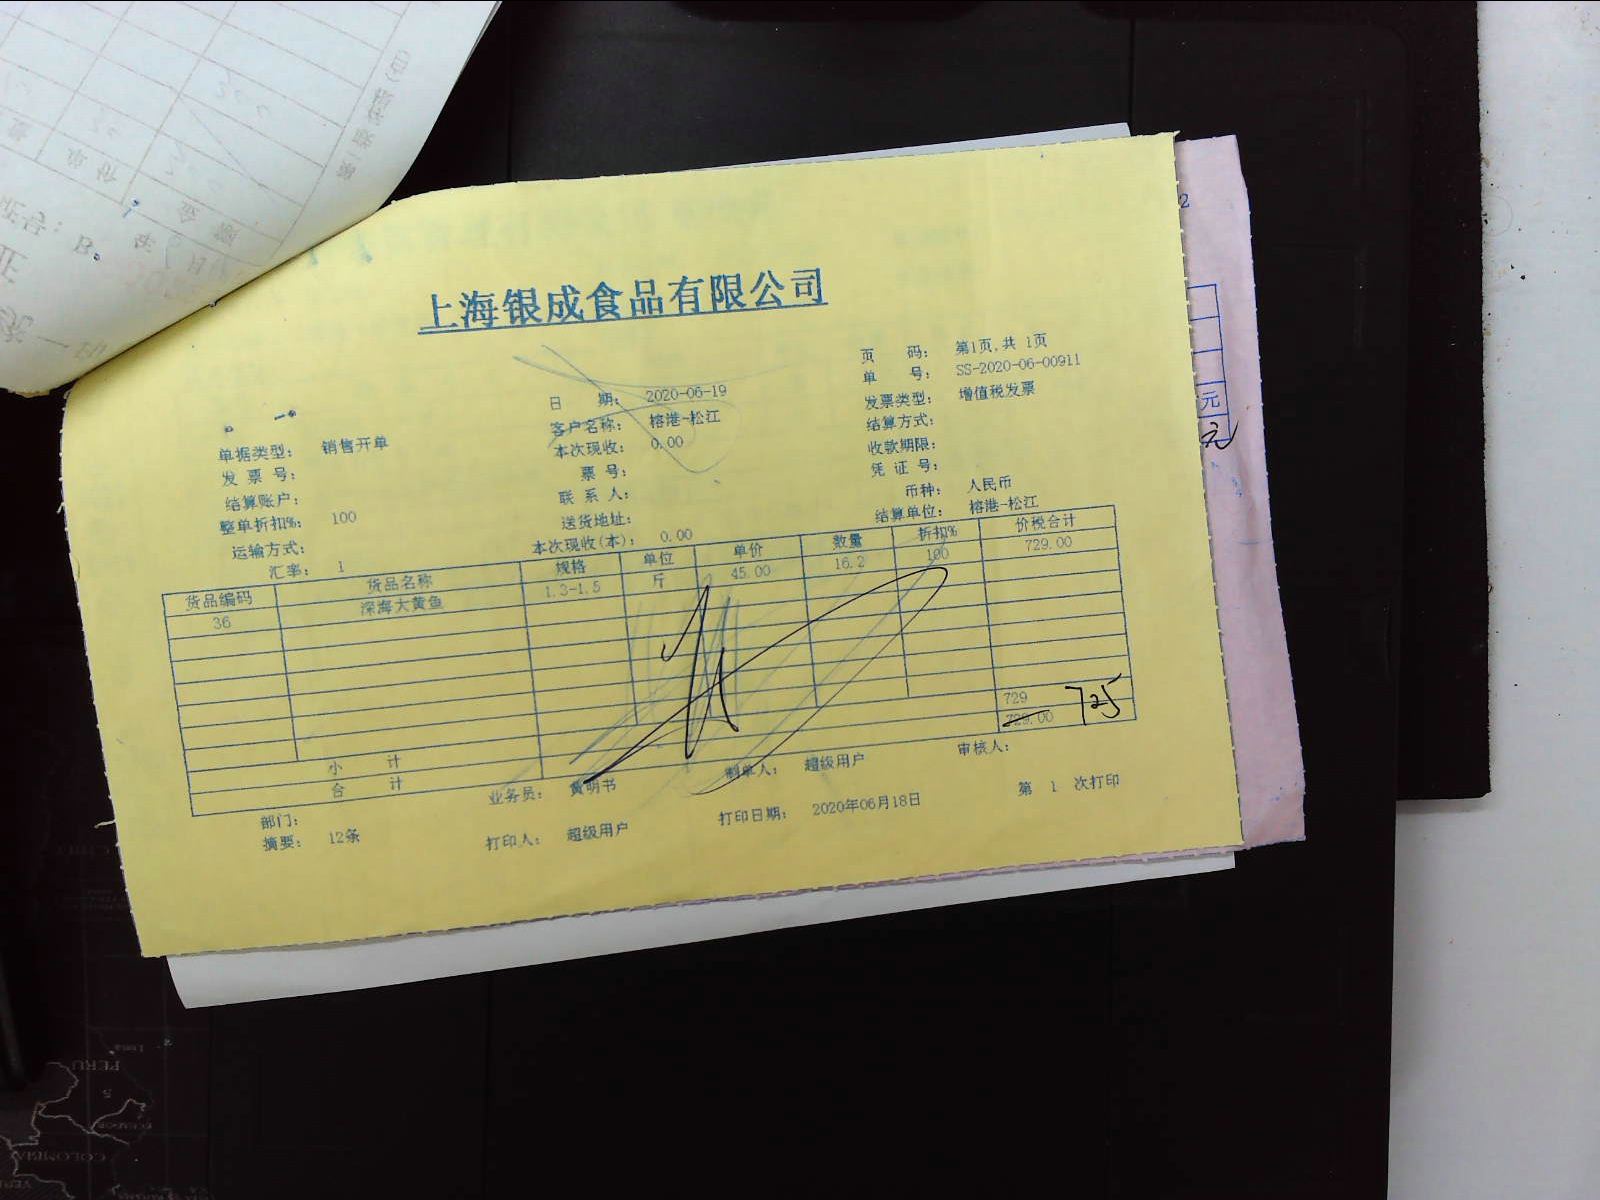 上海银成食品有限公司
页 码： 第1页,共 1页
日 期： 2020-06-19 单 号： SS-2020-06-00911
单据类型： 销售开单 客户名称： 榕港-松江 发票类型： 增值税发票
发 票 号： 本次现收： 0.00 结算方式：
结算账户： 票 号： 收款期限：
整单折扣%： 100 联 系 人： 凭 证 号：
运输方式： 送货地址： 币种： 人民币
汇率： 1 本次现收(本)： 0.00 结算单位： 榕港-松江
货品编码 货品名称 规格 单位 单价 数量 折扣% 价税合计
36 深海大黄鱼 1.3-1.5 斤 45.00 16.2 100 729.00
小 计 729
合 计 729.00 725
部门： 业务员： 黄明书 制单人： 超级用户 审核人：
摘要： 12条 打印人： 超级用户 打印日期： 2020年06月18日 第 1 次打印
2
元
元
PERU
COLOMBIA